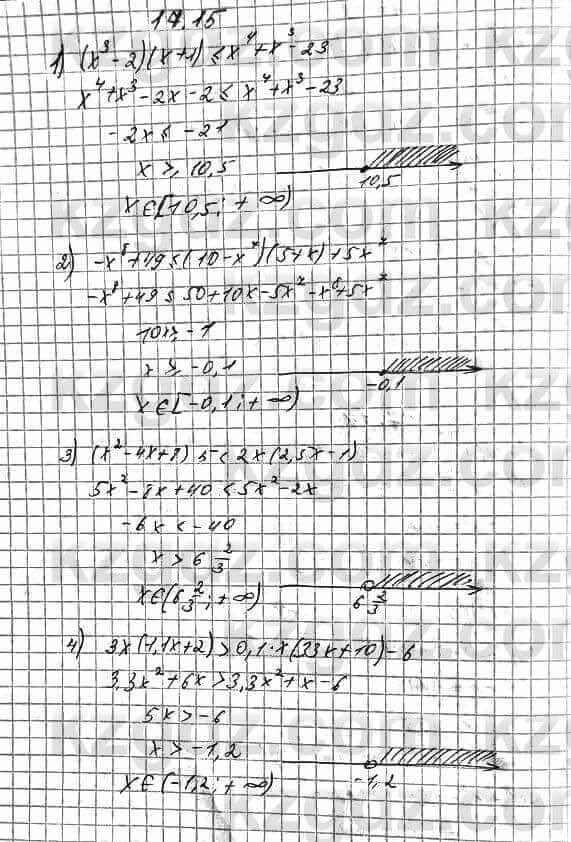 17.15
1) (x³-2)(x+1) ≤ x⁴+x³-23
x⁴+x³-2x-2 ≤ x⁴+x³-23
-2x ≤ -21
x ≥ 10,5
10,5
x∈[10,5; +∞)
2) -x³+49 ≤ (10-x²)(5+x)+5x²
-x³+49 ≤ 50+10x-5x²-x³+5x²
10x ≥ -1
x ≥ -0,1
-0,1
x∈[-0,1; +∞)
3) (x²-4x+8)5 < 2x(2,5x-1)
5x²-8x+40 < 5x²-2x
-6x < -40
x > 6 2/3
x∈(6 2/3; +∞)
6 2/3
4) 3x(1,1x+2) > 0,1·x(33x+10)-6
3,3x²+6x > 3,3x²+x-6
5x > -6
x > -1,2
-1,2
x∈(-1,2; +∞)
kzgdz.com